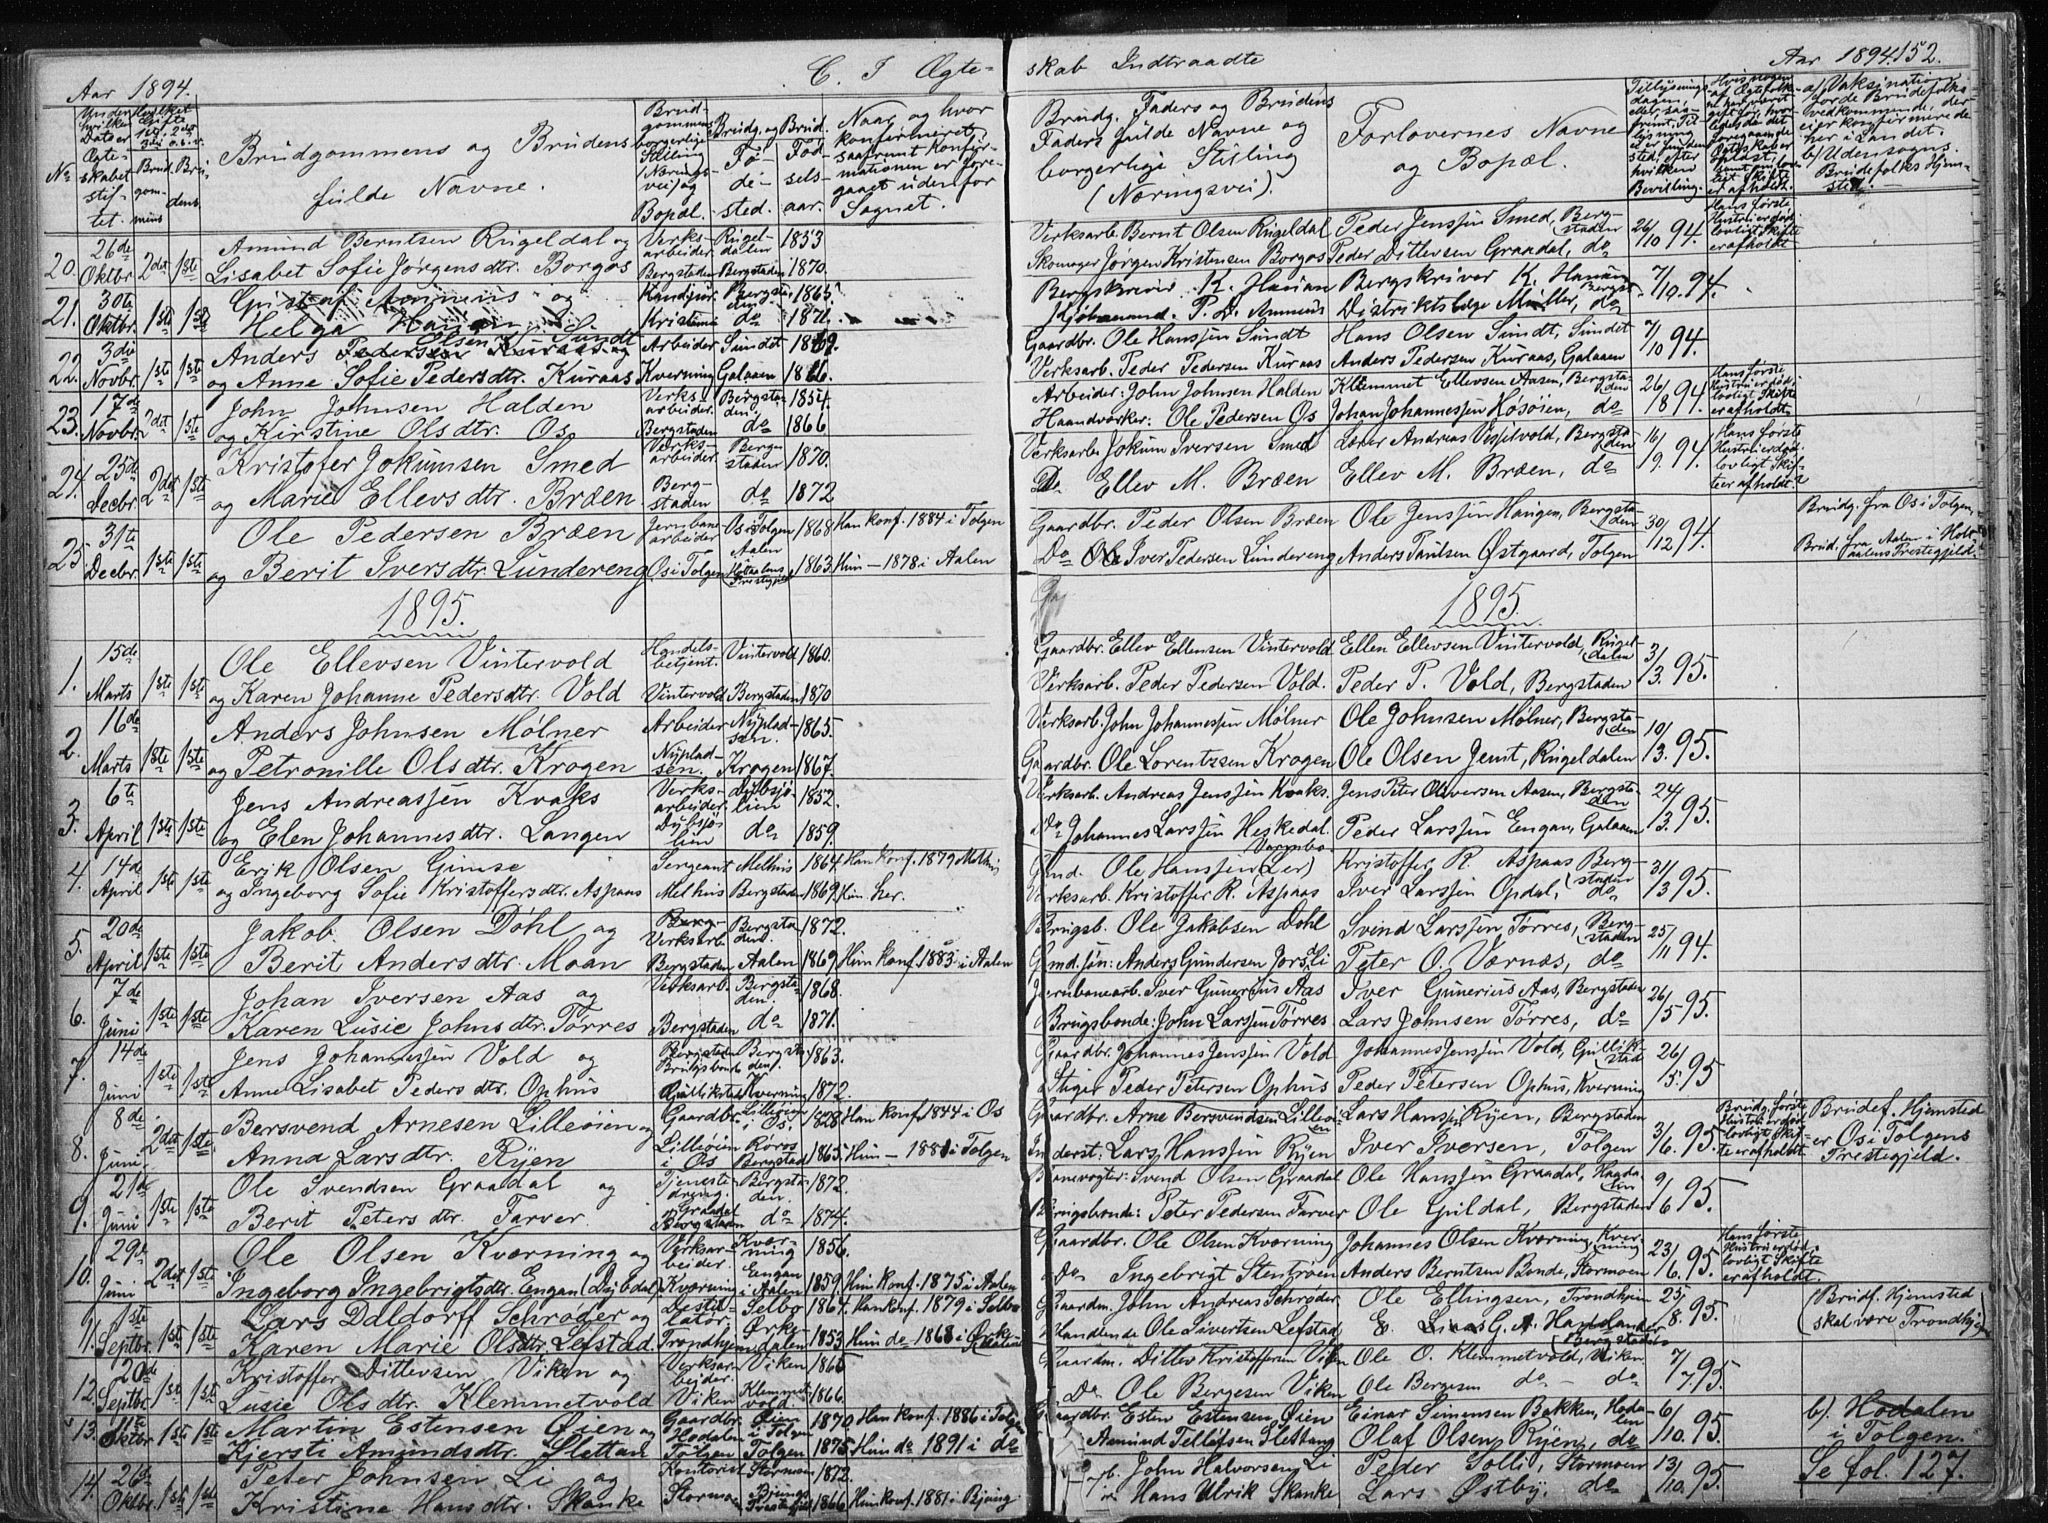 Aar 1894. C. I Ægte-
skab Indtraadte Aar 1894. 152.
No
Under hvilken Dato er Ægteskabet stiftet.
Brudgommens og Brudens fulde Navne.
Brudgommens borgerlige Stilling (Næringsvei) og Bopæl.
Brudg. og Brud. Fødested.
Fødselsaar.
Naar og hvor konfirmeret, saafremt konfirmationen er foregaaet udenfor Sognet.
Brudg. Faders og Brudens Faders fulde Navne og borgerlige Stilling (Næringsvei).
Forlovernes Navne og Bopæl.
20. 26de Oktbr 2det 1ste Amund Berntsen Rugeldal og Verksarbeider Rugeldalen 1853
Lisabet Sofie Jørgensdtr. Borgos Bergstaden Bergstaden 1870.
Verksarb. Bernt Olsen Rugeldal Peder Jensen Smed, Bergstaden 26/10 94. Hans første Hustru er død, lovligt Skifte er afholdt
Skomager Jørgen Kristensen Borgos Peder Ditlevsen Graadal, do
21. 30te Oktbr. 1ste 1ste og Bergstaden 1865
Helga Kristiania do 1871.
K. Hauan Bergskriver K. Hauan Bergst. 7/10 94.
Distriktslæge Müller, do
22. 3die Novbr. 1ste 1ste Anders Olsen Sundt Arbeider Sundet 1869.
og Anne Sofie Pedersdtr. Kuraas Kverning Galaaen 1866.
Gaardbr. Ole Hansen Sundt Hans Olsen Sundt, Sundet 7/10 94.
Verksarb. Peder Pedersen Kuraas Anders Pedersen Kuraas, Galaaen
23. 17de Novbr. 2det 1ste John Johnsen Halden Verksarbeider. Bergstaden 1854.
og Kirstine Olsdtr. Os Bergstaden do 1866
Arbeider: John Johnsen Halden Klemmet Ellevsen Aasen, Bergstaden 26/8 94. Hans første Hustru er død, lovligt Skifte er afholdt
Haandværker: Ole Pedersen Os Johan Johannessen Høsøien, do
24. 25de Decbr 2det 1ste Kristofer Jokumsen Smed Verksarbeider. Bergstaden 1870.
og Marie Ellevsdtr. Bræen Bergstaden do 1872
Verksarb. Jokum Iversen Smed Lærer Andreas Vesselvold, Bergstaden 16/9 94. Hans første Hustru er død, lovligt Skifte er afholdt?
Do Ellev M. Bræen Ellev M. Bræen, do
25. 31te Decbr 1ste 1ste Ole Pedersen Bræen Jernbanearbeider Os i Tolgen 1868 Han konf. 1884 i Tolgen
og Berit Iversdtr. Lundereng Os i Tolgen Aalen Holtaalens Prestegjeld 1863 Hun — 1878 i Aalen
Gaardbr. Peder Olsen Bræen Ole Jensen Haugen, Bergstaden 30/12 94. Brudg. fra Os i Tolgen,
Do Iver Pedersen Lundereng Anders Paulsen Østgaard, Tolgen Brud. fra Aalen i Holtaalens Prestegjeld.
1895. 1895.
1. 15de Marts 1ste 1ste Ole Ellevsen Vintervold Handelsbetjent. Vintervold 1860.
og Karen Johanne Pedersdtr. Vold Vintervold Bergstaden 1870
Gaardbr. Ellev Ellensen Vintervold Ellen Ellevsen Vintervold, Rugeldalen 3/3. 95.
Verksarb. Peder Pedersen Vold. Peder P. Vold, Bergstaden
2. 16de Marts 1ste 1ste Anders Johnsen Mølner Arbeider Nypladsen. 1865.
og Petronille Olsdtr. Krogen Nypladsen. Krogen 1867.
Verksarb. John Johannessen Mølner Ole Johnsen Mølner, Bergstaden 10/3. 95.
Gaardbr. Ole Lorentzsen Krogen Ole Olsen Jemt, Rugeldalen
3. 6te April 1ste 1ste Jens Andreassen Kvaks Verksarbeider Dybsjølien 1852.
og Elen Johannesdtr. Langen Dybsjølien do 1859.
Verksarb. Andreas Jenssen Kvaks. Jens Peter Oliversen Aasen, Bergstaden 24/3. 95.
Do Johannes Larssen Heskedal. Peder Larssen Engan, Galaaen
4. 14de April 1ste 1ste Erik Olsen Gimse Sergeant Melhus 1864. Han konf. 1879 Melhus
og Ingeborg Sofie Kristoffersdtr. Aspaas Melhus Bergstaden 1869. Hun her.
Gmd. Ole Hanssen (Ler) Kristoffer R. Aspaas Bergstaden 31/3 95.
Verksarb. Kristoffer R. Aspaas Iver Larssen Opdal, do
5. 20de April 1ste 1ste Jakob Olsen Döhl og Verksarb. Bergstaden. 1872.
Berit Andersdtr. Moan Bergstaden Aalen 1869 Hun konf. 1883 i Aalen
Brugsb. Ole Jakobsen Døhl Svend Larssen Torres, Bergstaden 25/11 94.
Anders Gundersen Peter O. Værnæs, do
6. 7de Juni 1ste 1ste Johan Iversen Aas og Verksarb. Bergstaden. 1868.
Karen Lusie Johnsdtr. Torres Bergstaden do 1871.
Jernbanearb. Iver Gunerius Aas Iver Gunerius Aas, Bergstaden 26/5 95.
Brugsbonde: John Larssen Torres. Lars Johnsen Torres, do
7. 14de Juni 1ste 1ste Jens Johannessen Vold og Bergstaden 1863.
Anne Lisabet Pedersdtr. Ophus Gullikstad Kverning 1872.
Gaardbr. Johannes Jenssen Vold Johannes Jenssen Vold, Gullikstad 26/5. 95
Stiger Peder Petersen Ophus Peder Petersen Ophus, Kverning
8. 8de Juni. 2det 1ste Bersvend Arnesen Lilleøien og Gaardbr. Lilleøien i Os. 1828 Han konf. 1844 i Os
Anna Larsdtr. Ryen Lilleøien i Os Röros Bergstad 1865 Hun — 1881 i Tolgen
Gaardbr. Arne Bersvendsen Lilleøien Lars Hanssen Ryen, Bergstaden 3/6. 95. Brudg. første Hustru er død, lovligt Skifte er afholdt Brudef. Hjemsted er Os i Tolgens Prestegjeld.
Inderst: Lars Hanssen Ryen Iver Iversen, Tolgen
9. 21de Juni 1ste 1ste Ole Svendsen Graadal og Tjenestedreng. Bergstaden. 1872.
Berit Petersdtr. Farver. Graadal Bergstaden do 1874.
Banevogter: Svend Olsen Graadal Ole Hanssen Graadal, 9/6 95.
Brugsbonde: Peter Pedersen Farver Ole Guldal, Bergstaden
10. 29de Juni 2det 1ste Ole Olsen Kværning og Verksarbeider. Kværning 1856.
Ingeborg Ingebrigtsdtr. Engan (Dybdal) Kværning Engan i Aalen 1859. Hun konf. 1875 i Aalen
Gaardbr. Ole Olsen Kværning Johannes Olsen Kværning, Kverning 23/6. 95. Hans første Hustru er død, lovligt Skifte er afholdt.
Do Ingebrigt Stentrøen Anders Berntsen Bonde, Stormoen
11. 1ste Septbr. 1ste 1ste Lars Daldorff Schrøder og Destillatør, Selbo 1867. Han konf. 1879 i Selbu
Karen Marie Olsdtr. Lefstad. Trondhjem Ørkedalen 1853 Hun do 1868 i Ørkedalen
Gaardm. John Andreas Schrøder Ole Ellingsen, Trondhjem 25/8. 95. (Brudf. Hjemsted skal være Trondhjem
Handlende Ole Sivertsen Lefstad Bergstaden
12. 20de Septbr 1st 1st Kristoffer Ditlevsen Viken og Verksarbeider. Viken 1865
Lusie Olsdtr. Klemmetvold Viken Klemmetvold. 1866.
Gaardm. Ditlev Kristoffersen Viken Ole O. Klemmetvold, Viken 7/7. 95.
Do Ole Bergesen Viken Ole Bergesen do — do
13. Oktbr 1ste 1ste Martin Estensen Øien og Gaardbr. Øien i Tolgen 1870 Han konf. 1886 i Tolgen
Kjersti Amundsdtr. Slettan Hodalen Tolgen Tolgen 1875 Hun do 1891 i do
Gaardbr. Esten Estensen Øien Einar Simensen Bakken, Hodalen 6/10. 95. b). Hodalen i Tolgen.
Amund Tellefsen Slettang Olaf Olsen Ryen, do
14. 26de Oktbr. 1ste 1ste Peter Johnsen Li og Kontorist Stormoen 1872.
Kristine Hansdtr. Skanke Stormoen 1866 Hun konf. 1881 i Bjung
John Halvorsen Li Peder Solli, Stormoen 13/10. 95. Se fol. 127.
Hans Ulrik Skanke Lars Østby, do